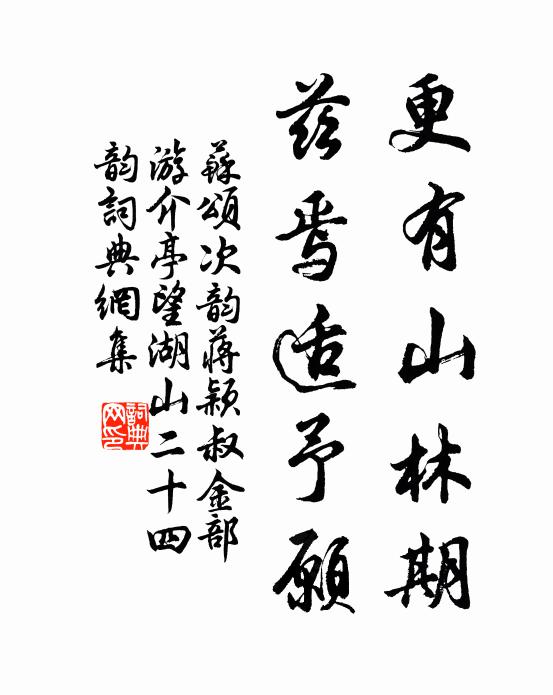 更有山林期
兹焉适予願
蘇頌次韵蔣颖叔金部
游介亭望湖山二十四
韵詞典網集
詞典网印